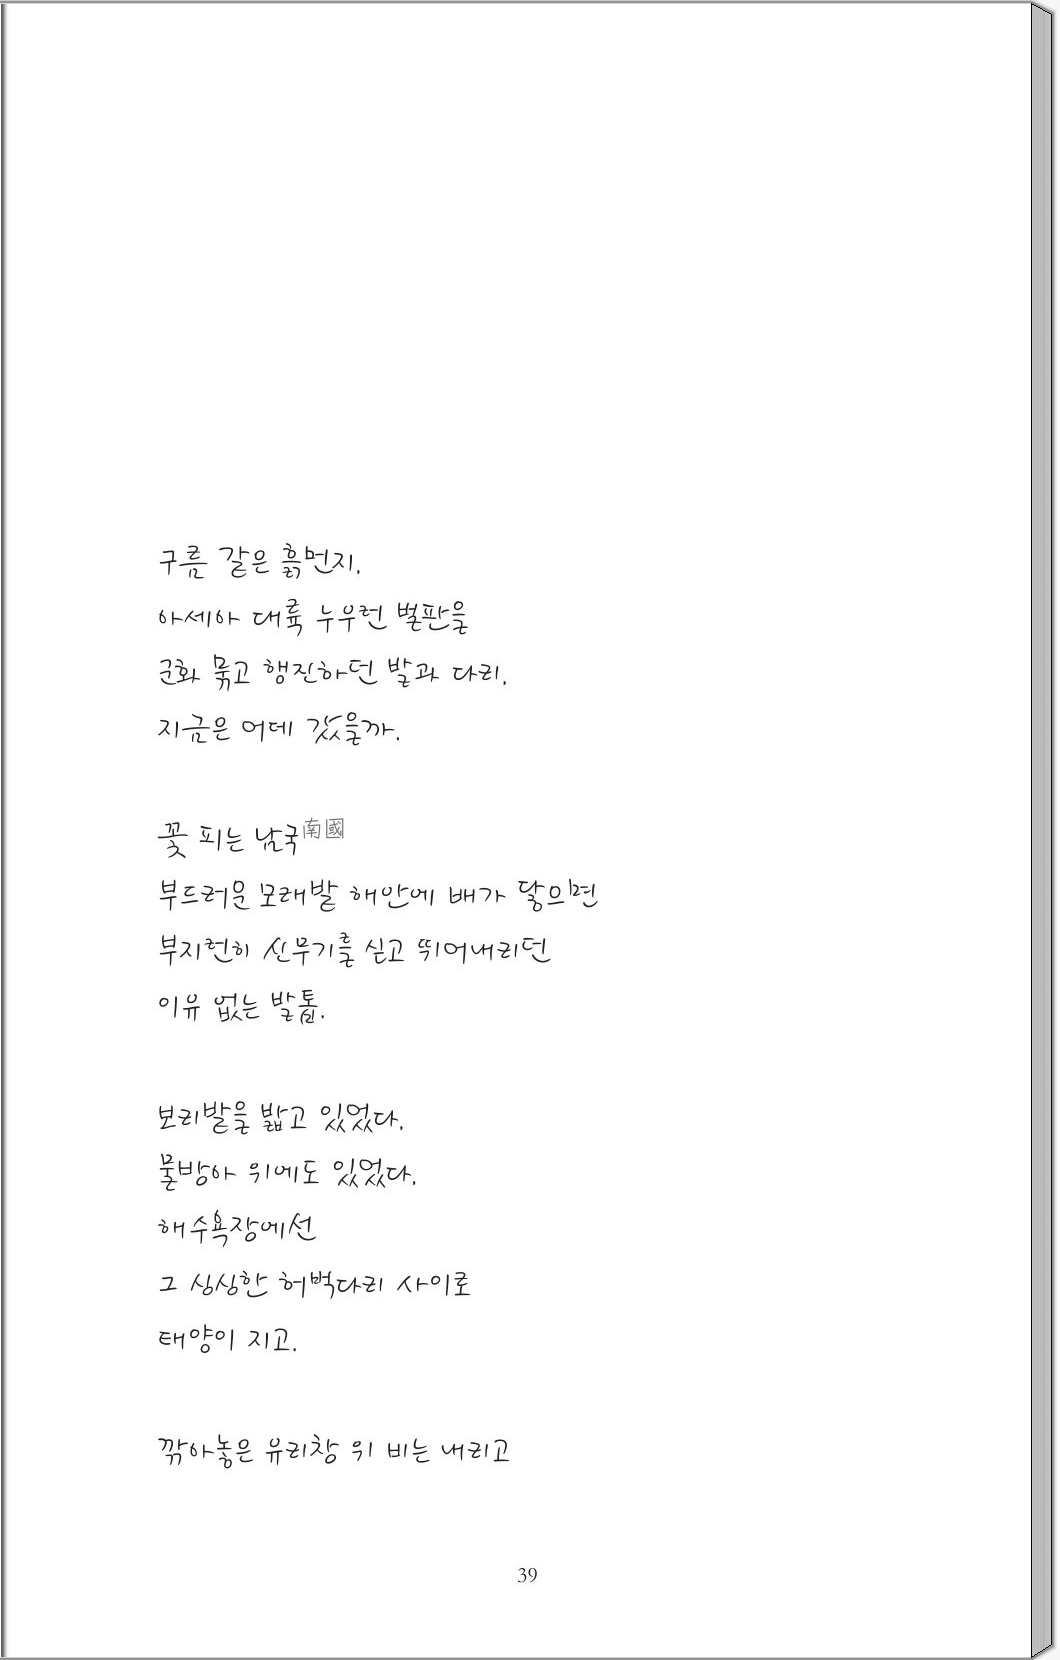 구름 같은 흙먼지.
아세아 대륙 누우런 벌판을
군화 묶고 행진하던 발과 다리.
지금은 어데 갔을까.
꽃 피는 남국南國
부드러운 모래밭 해안에 배가 닿으면
부지런히 신무기를 싣고 뛰어내리던
이유 없는 발톱.
보리밭을 밟고 있었다.
물방아 위에도 있었다.
해수욕장에선
그 싱싱한 허벅다리 사이로
태양이 지고.
깎아놓은 유리창 위 비는 내리고
39